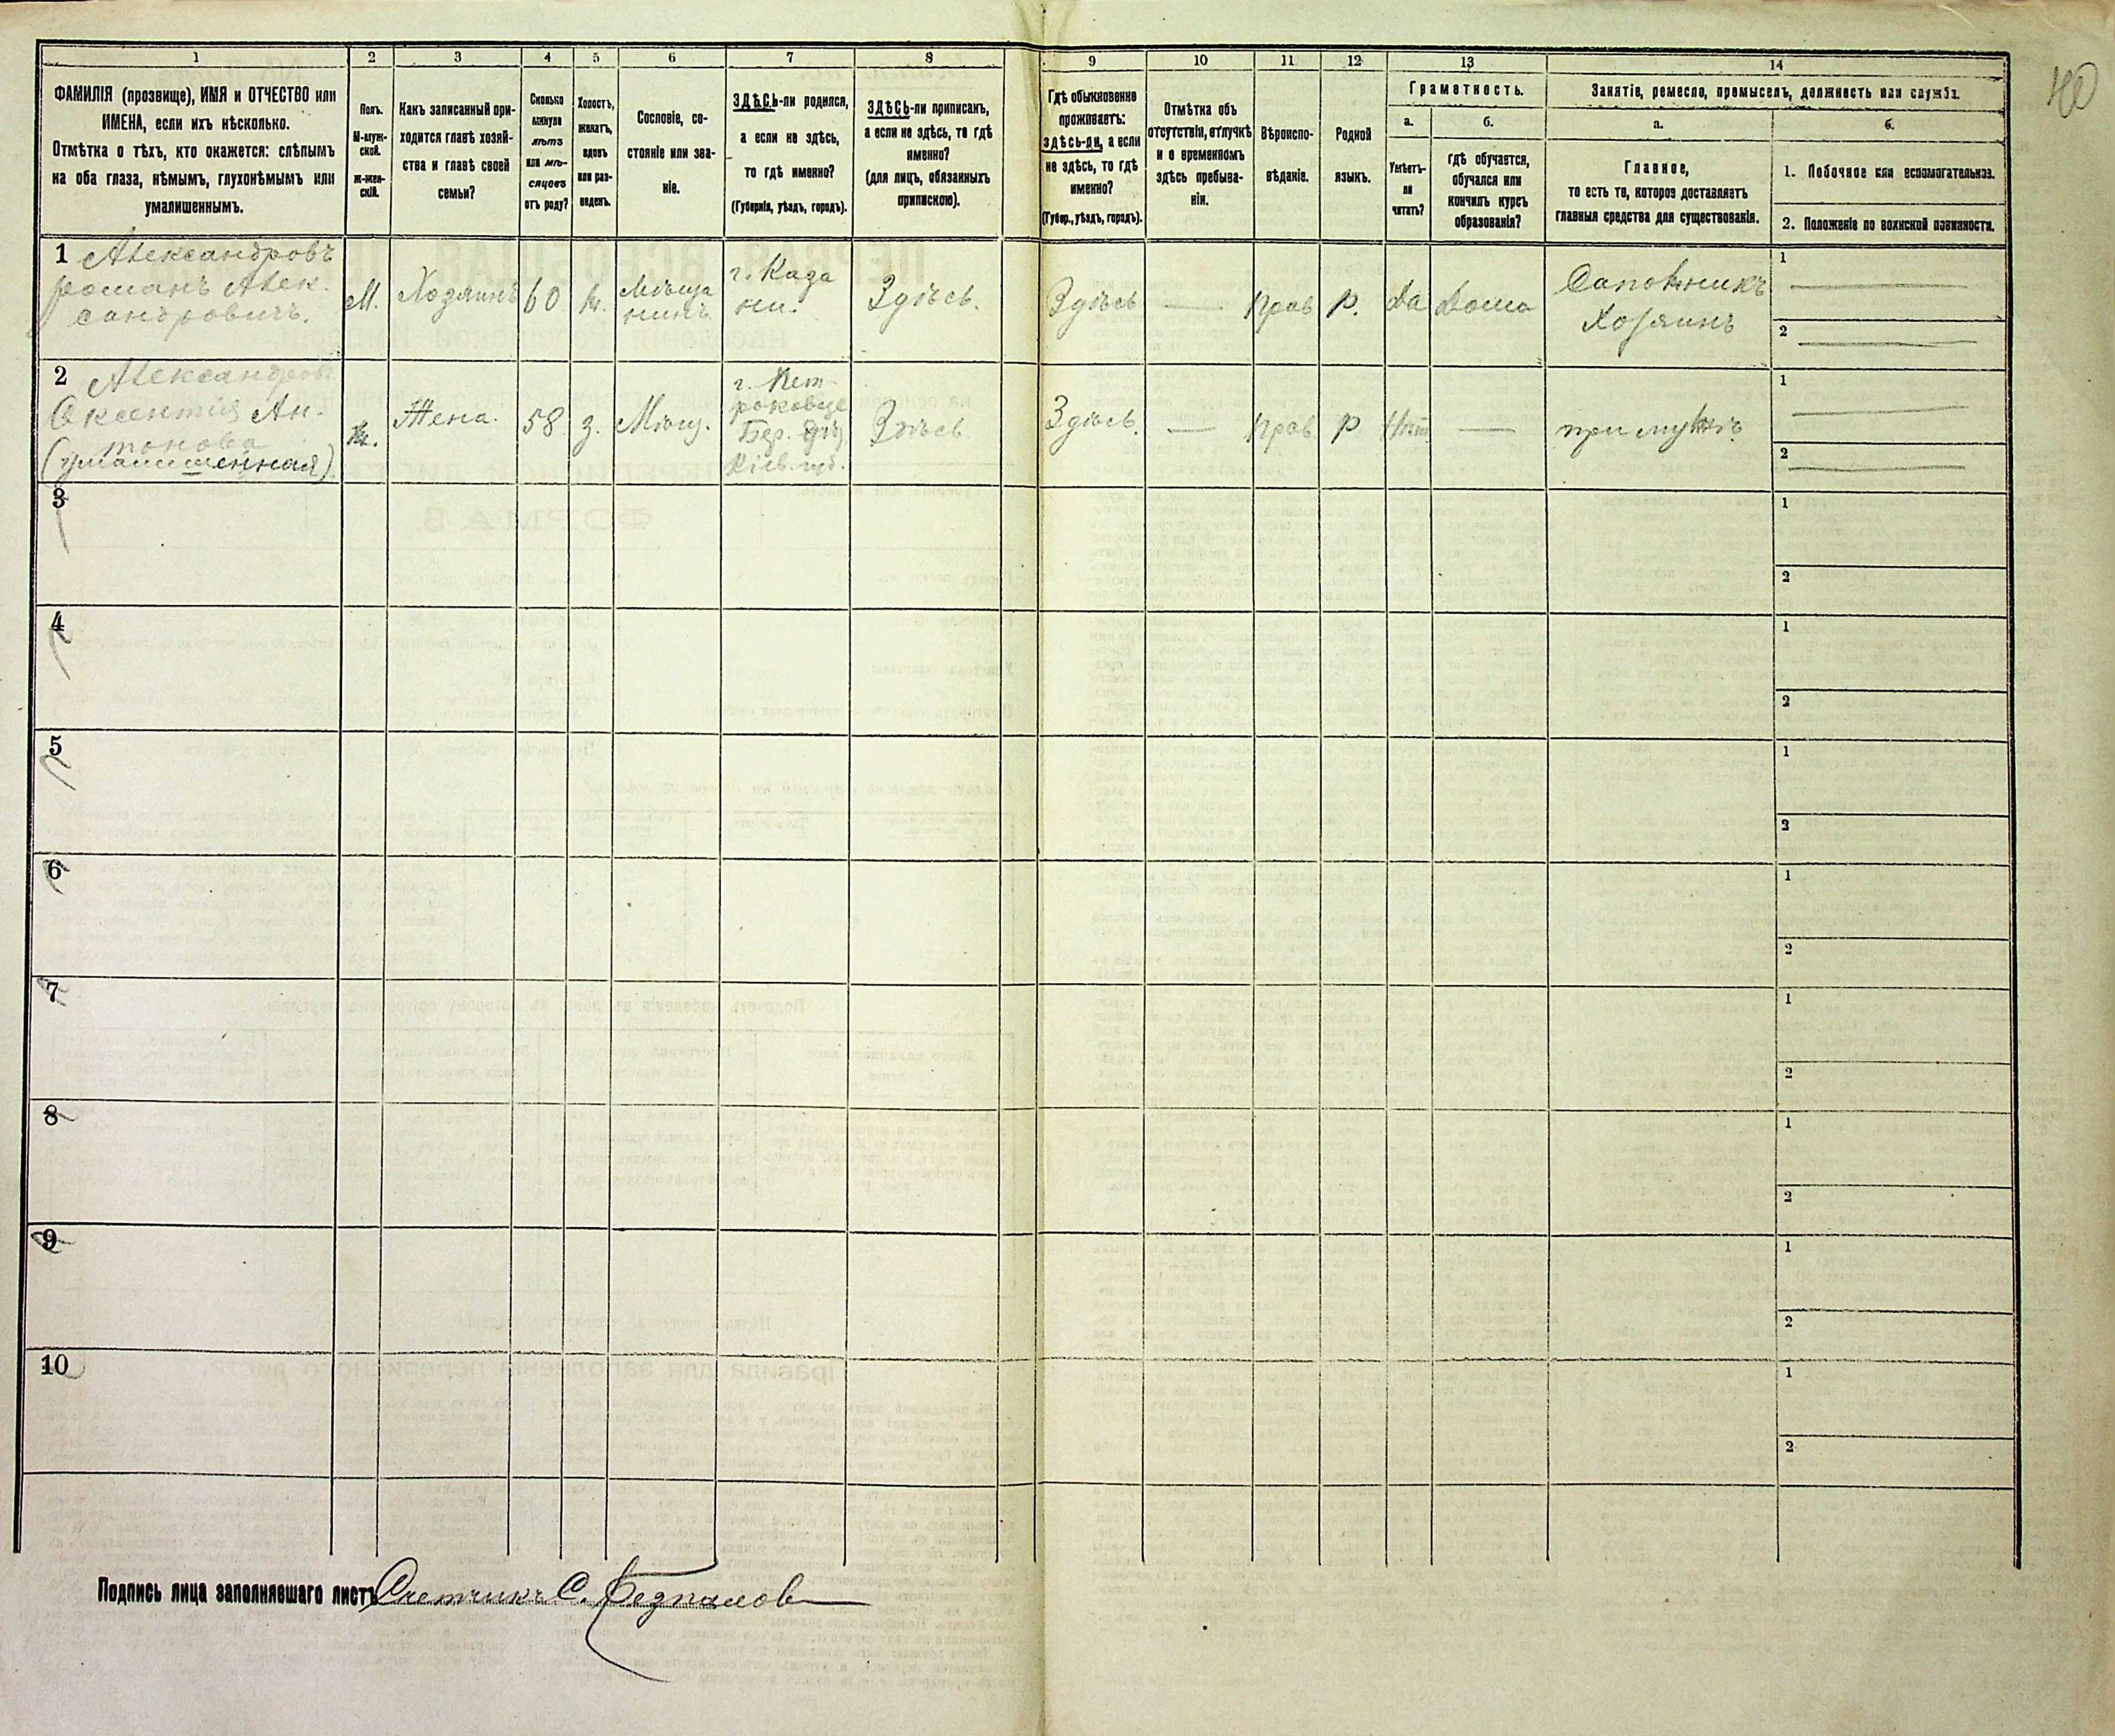 1
2
3
4
5
6
7
8
9
10
11
12
13
14
40
ФАМИЛІЯ (прозвище), ИМЯ и ОТЧЕСТВО или
ИМЕНА, если ихъ нѣсколько.
Отмѣтка о тѣхъ, кто окажется: слѣпымъ
на оба глаза, нѣмымъ, глухонѣмымъ или
умалишеннымъ.
Полъ.
М-муж-
ской.
ж-жен-
скій.
Какъ записанный при-
ходится главѣ хозяй-
ства и главѣ своей
семьи?
Сколько
минуло
лѣтъ
или мѣ-
сяцевъ
отъ роду?
Холостъ,
женатъ,
вдовъ
или раз-
веденъ.
Сословіе, со-
стояніе или зва-
ніе.
ЗДѢСЬ-ли родился,
а если не здѣсь,
то гдѣ именно?
(Губернія, уѣздъ, городъ).
ЗДѢСЬ-ли приписанъ,
а если не здѣсь, то гдѣ
именно?
(для лицъ, обязанныхъ
припискою).
Гдѣ обыкновенно
проживаетъ:
здѣсь-ли, а если
не здѣсь, то гдѣ
именно?
(Губер., уѣздъ, городъ).
Отмѣтка объ
отсутствіи, отлучкѣ
и о временномъ
здѣсь пребыва-
ніи.
Вѣроиспо-
вѣданіе.
Родной
языкъ.
Грамотность.
а.
Умѣетъ-
ли
читать?
б.
гдѣ обучается,
обучался или
кончилъ курсъ
образованія?
Занятіе, ремесло, промыселъ, должность или служба.
а.
Главное,
то есть то, которое доставляетъ
главныя средства для существованія.
б.
1. Побочное или вспомогательное.
2. Положеніе по воинской повинности.
1
Александровъ
Романъ Алек-
сандровичъ.
М.
Хозяинъ
60
ж.
Мѣща
нинъ
г. Каза
ни.
Здѣсь.
Здѣсь
—
прав
р.
Да
Дома
Сапожникъ
Хозяинъ
1
2
2
Александров
Оксентія Ан-
тонова
(умалишенная)
ж.
Жена.
58
з.
Мѣщ.
Здѣсь
Здѣсь.
—
прав.
р
Нѣт
—
при мужѣ
1
2
3
1
2
4
1
2
5
1
2
6
1
2
7
1
2
8
1
2
9
1
2
10
1
2
Подпись лица заполнявшаго листъ Счетчикъ С.